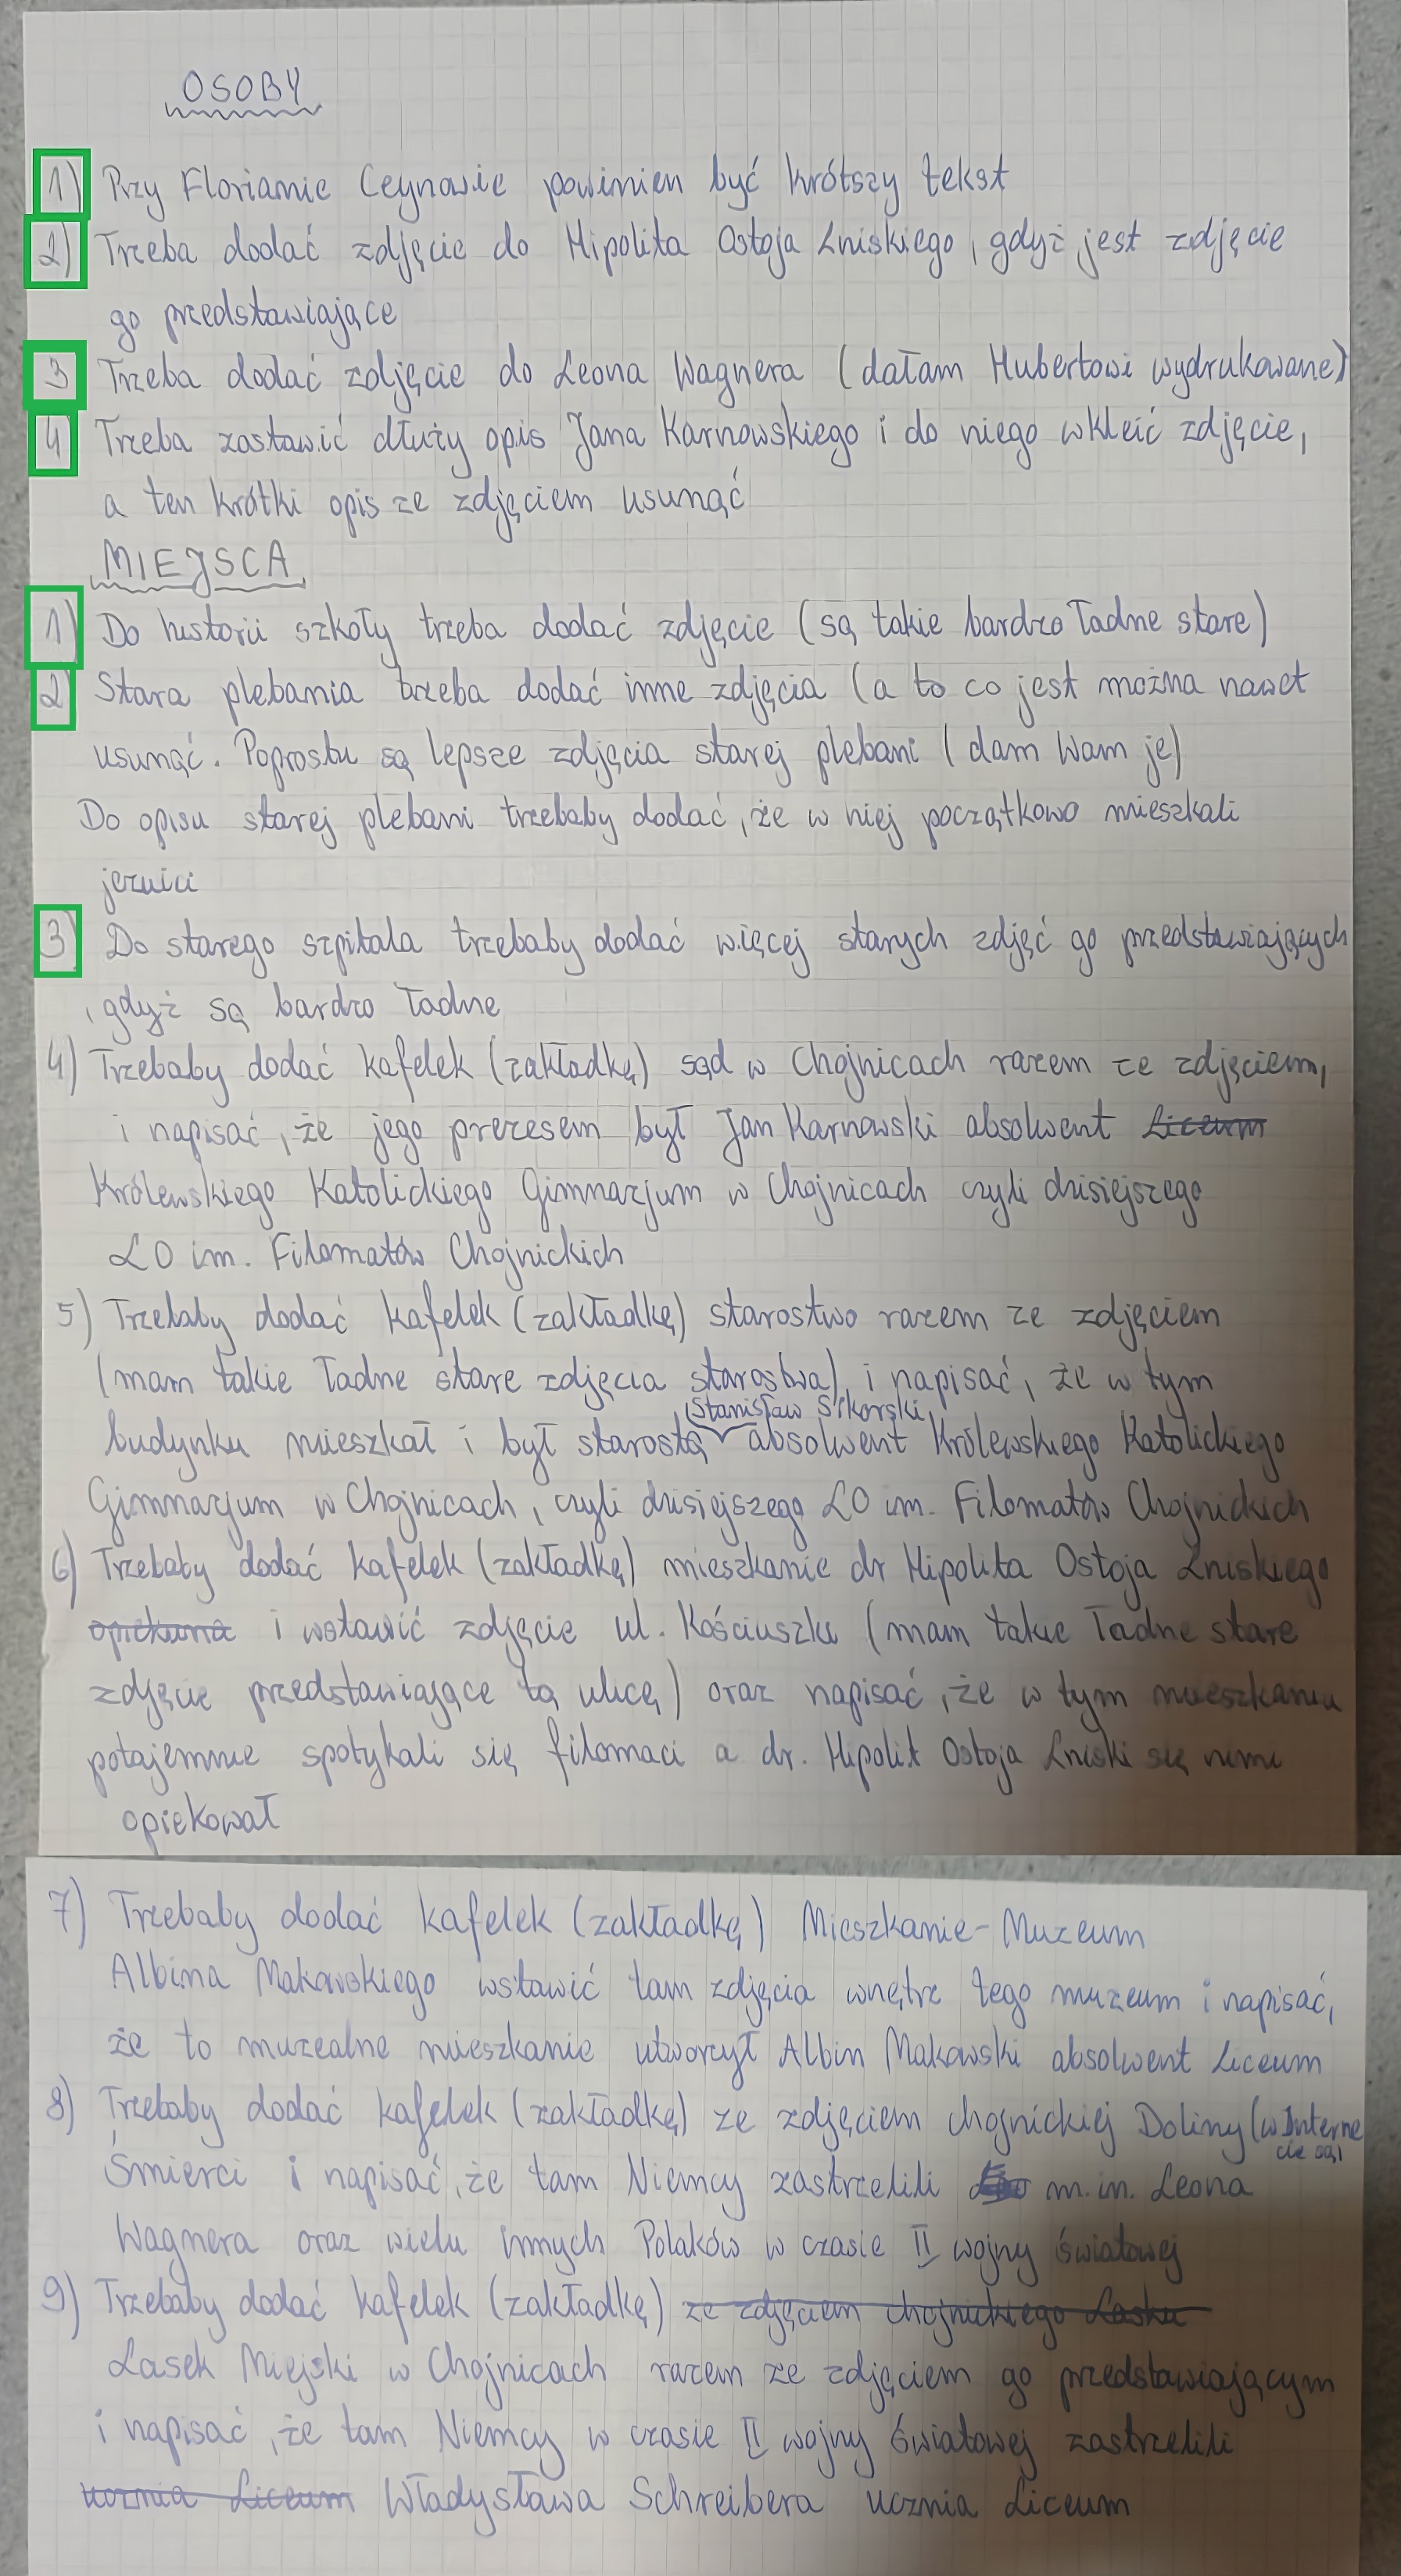 OSOBY
1) Przy Florianie Ceynowie powinien być krótszy tekst
2) Trzeba dodać zdjęcie do Hipolita Ostoja Lniskiego, gdyż jest zdjęcie
go przedstawiające
3 Trzeba dodać zdjęcie do Leona Wagnera (dałam Hubertowi wydrukowane)
4 Trzeba zostawić dłuży opis Jana Karnowskiego i do niego wkleić zdjęcie,
a ten krótki opis ze zdjęciem usunąć
MIEJSCA
1) Do historii szkoły trzeba dodać zdjęcie (są takie bardzo ładne stare)
2 Stara plebania trzeba dodać inne zdjęcia (a to co jest można nawet
usunąć. Poprostu są lepsze zdjęcia starej plebani (dam Wam je)
Do opisu starej plebani trzebaby dodać, że w niej początkowo mieszkali
jezuici
3) Do starego szpitala trzebaby dodać więcej starych zdjęć go przedstawiających
, gdyż są bardzo ładne
4) Trzebaby dodać kafelek (zakładkę) sąd w Chojnicach razem ze zdjęciem,
i napisać, że jego prezesem był Jan Karnowski absolwent Liceum
Królewskiego Katolickiego Gimnazjum w Chojnicach czyli dzisiejszego
LO im. Filomatów Chojnickich
5) Trzebaby dodać kafelek (zakładkę) starostwo razem ze zdjęciem
(mam takie ładne stare zdjęcia starostwa) i napisać, że w tym
Stanisław Sikorski
budynku mieszkał i był starostą absolwent Królewskiego Katolickiego
Gimnazjum w Chojnicach, czyli dzisiejszego LO im. Filomatów Chojnickich
6) Trzebaby dodać kafelek (zakładkę) mieszkanie dr Hipolita Ostoja Lniskiego
opiekuna i wstawić zdjęcie ul. Kościuszki (mam takie ładne stare
zdjęcie przedstawiające tą ulicę) oraz napisać, że w tym mieszkaniu
potajemnie spotykali się filomaci a dr. Hipolit Ostoja Lniski się nimi
opiekował
7) Trzebaby dodać kafelek (zakładkę) Mieszkanie-Muzeum
Albina Makowskiego wstawić tam zdjęcia wnętrz tego muzeum i napisać,
że to muzealne mieszkanie utworzył Albin Makowski absolwent Liceum
8) Trzebaby dodać kafelek (zakładkę) ze zdjęciem chojnickiej Doliny (w Interne
cie są)
Śmierci i napisać, że tam Niemcy zastrzelili m.in. Leona
Wagnera oraz wielu innych Polaków w czasie II wojny światowej
9) Trzebaby dodać kafelek (zakładkę) ze zdjęciem chojnickiego Lasku
Lasek Miejski w Chojnicach razem ze zdjęciem go przedstawiającym
i napisać, że tam Niemcy w czasie II wojny światowej zastrzelili
ucznia Liceum Władysława Schreibera ucznia Liceum